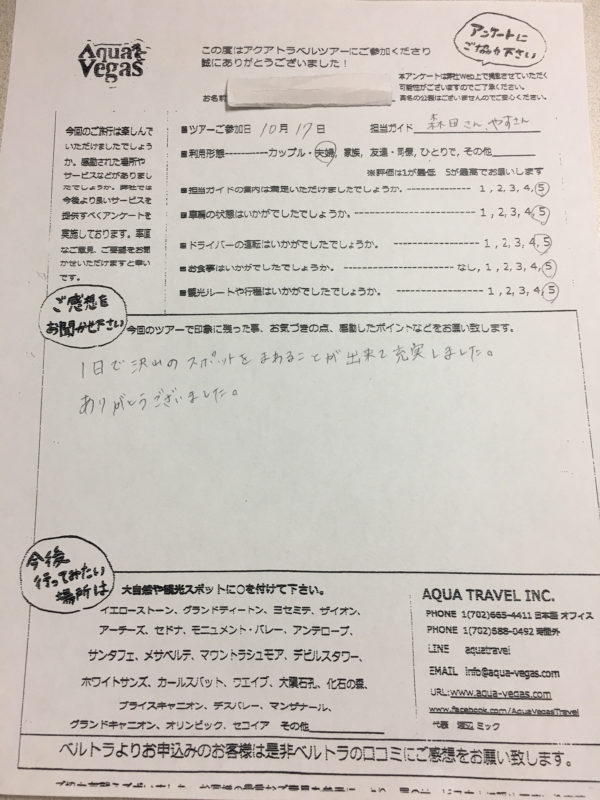 Aqua Vegas
この度はアクアトラベルツアーにご参加くださり
誠にありがとうございました！
アンケートに
ご協力下さい
本アンケートは弊社Web上で掲載させていただく
可能性がございますのでご了承ください。
実名の公開はございませんのでご安心ください。
お名前
今回のご旅行は楽しんで
いただけましたでしょう
か。感動された場所や
サービスなどがありまし
たでしょうか。弊社では
今後より良いサービスを
提供すべくアンケートを
実施しております。率直
なご意見、ご要望をお聞
かせいただけますと幸い
です。
■ツアーご参加日 10月 17日 担当ガイド 森田さん、やすさん
■利用形態-----------カップル・夫婦, 家族, 友達・同僚, ひとりで, その他
※評価は1が最低 5が最高でお願いします
■担当ガイドの案内は満足いただけましたでしょうか。--------------- 1, 2, 3, 4, 5
■車輌の状態はいかがでしたでしょうか。------------------------- 1, 2, 3, 4, 5
■ドライバーの運転はいかがでしたでしょうか。------------------- 1, 2, 3, 4, 5
■お食事はいかがでしたでしょうか。-------------------------なし, 1, 2, 3, 4, 5
■観光ルートや行程はいかがでしたでしょうか。------------------- 1, 2, 3, 4, 5
ご感想を
お聞かせ下さい
今回のツアーで印象に残った事、お気づきの点、感動したポイントなどをお願い致します。
1日で沢山のスポットをまわることが出来て充実しました。
ありがとうございました。
今後
行ってみたい
場所は
大自然や観光スポットに○を付けて下さい。
イエローストーン、グランドティートン、ヨセミテ、ザイオン、
アーチーズ、セドナ、モニュメント・バレー、アンテロープ、
サンタフェ、メサベルテ、マウントラシュモア、デビルスタワー、
ホワイトサンズ、カールスバット、ウエイブ、大隕石孔、化石の森、
ブライスキャニオン、デスバレー、マンザナール、
グランドキャニオン、オリンピック、セコイア その他
AQUA TRAVEL INC.
PHONE 1(702)665-4411 日本語 オフィス
PHONE 1(702)588-0492 時間外
LINE aquatravel
EMAIL info@aqua-vegas.com
URL:www.aqua-vegas.com
www.facebook.com/AquaVegasTravel
代表 渡辺 ミック
ベルトラよりお申込みのお客様は是非ベルトラの口コミにご感想をお願い致します。